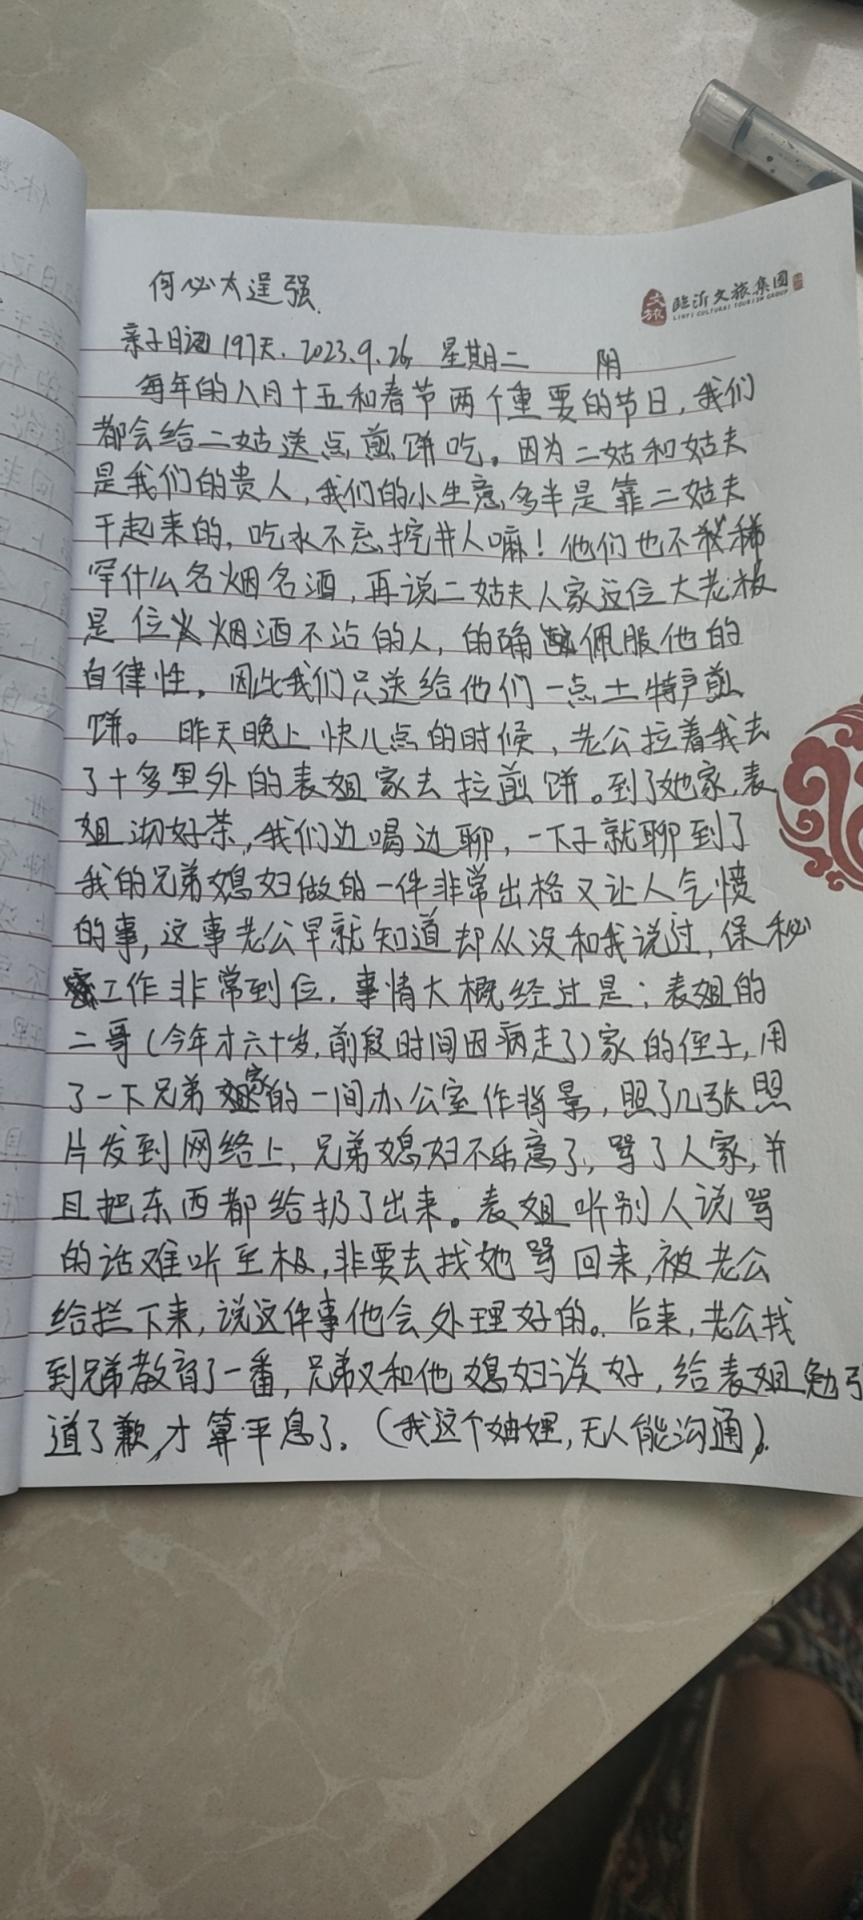 何必太逞强.
文旅 临沂文旅集团
LINYI CULTURAL TOURISM GROUP
亲子日记197天. 2023.9.26 星期二 阴
每年的八月十五和春节两个重要的节日，我们
都会给二姑送点煎饼吃。因为二姑和姑夫
是我们的贵人，我们的小生意多半是靠二姑夫
干起来的，吃水不忘挖井人嘛！他们也不稀
罕什么名烟名酒，再说二姑夫人家这位大老板
是位烟酒不沾的人，的确佩服他的
自律性。因此我们只送给他们一点土特产煎
饼。昨天晚上快几点的时候，老公拉着我去
了十多里外的表姐家去拉煎饼。到了她家，表
姐沏好茶，我们边喝边聊，一下子就聊到了
我的兄弟媳妇做的一件非常出格又让人气愤
的事，这事老公早就知道却从没和我说过，保秘
工作非常到位．事情大概经过是：表姐的
二哥（今年才六十岁，前段时间因病走了）家的侄子，用
了一下兄弟家的一间办公室作背景，照了几张照
片发到网络上，兄弟媳妇不乐意了，骂了人家，并
且把东西都给扔了出来。表姐听别人说骂
的话难听至极，非要去找她骂回来，被老公
给拦下来，说这件事他会处理好的。后来，老公找
到兄弟教育了一番，兄弟又和他媳妇谈好，给表姐勉引
道了歉，才算平息了。（我这个妯娌，无人能沟通）.